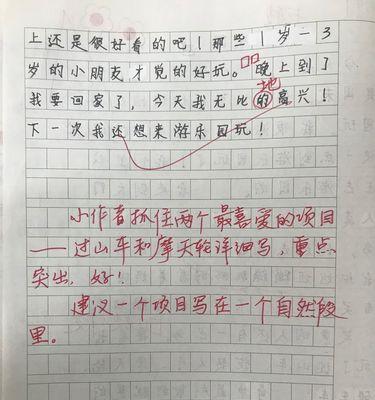 上还是很好看的吧！那些1岁一3
岁的小朋友才觉的好玩。晚上到了
地
我要回家了，今天我无比的高兴！
下一次我还想来游乐园玩！
小作者抓住两个最喜爱的项目
——过山车和摩天轮详细写，重点
突出，好！
建议一个项目写在一个自然段
里。